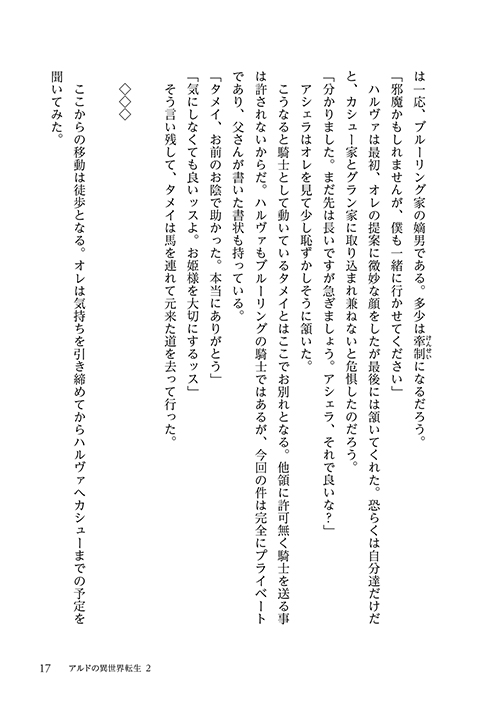 は一応、ブルーリング家の嫡男である。多少は牽制になるだろう。
けんせい
「邪魔かもしれませんが、僕も一緒に行かせてください」
ハルヴァは最初、オレの提案に微妙な顔をしたが最後には頷いてくれた。恐らくは自分達だけだ
と、カシュー家とグラン家に取り込まれ兼ねないと危惧したのだろう。
「分かりました。まだ先は長いですが急ぎましょう。アシェラ、それで良いな？」
アシェラはオレを見て少し恥ずかしそうに頷いた。
こうなると騎士として動いているタメイとはここでお別れとなる。他領に許可無く騎士を送る事
は許されないからだ。ハルヴァもブルーリングの騎士ではあるが、今回の件は完全にプライベート
であり、父さんが書いた書状も持っている。
「タメイ、お前のお陰で助かった。本当にありがとう」
「気にしなくても良いッスよ。お姫様を大切にするッス」
そう言い残して、タメイは馬を連れて元来た道を去って行った。
◇◇◇
ここからの移動は徒歩となる。オレは気持ちを引き締めてからハルヴァへカシューまでの予定を
聞いてみた。
17 アルドの異世界転生 2